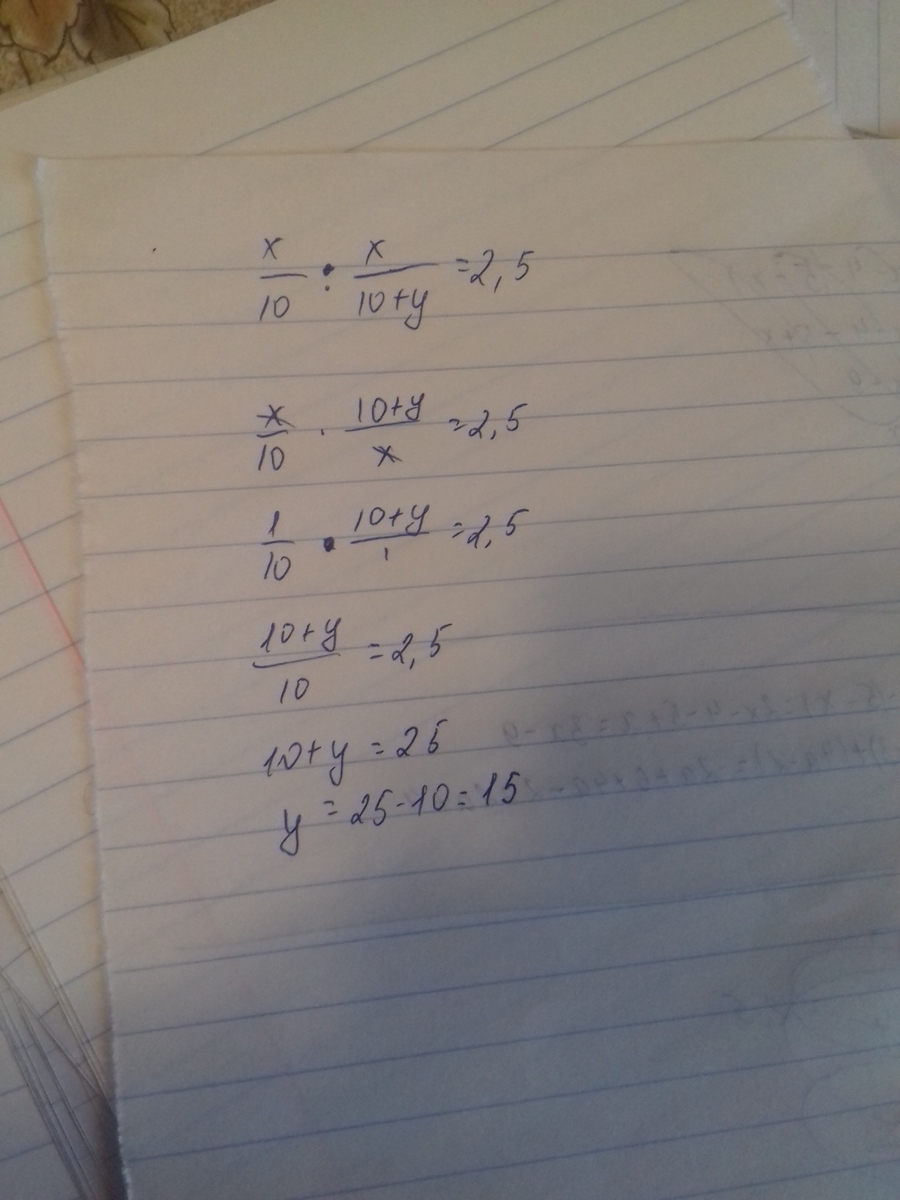 x/10 : x/(10+y) = 2,5
x/10 · (10+y)/x = 2,5
1/10 · (10+y)/1 = 2,5
(10+y)/10 = 2,5
10+y = 25
y = 25-10 = 15